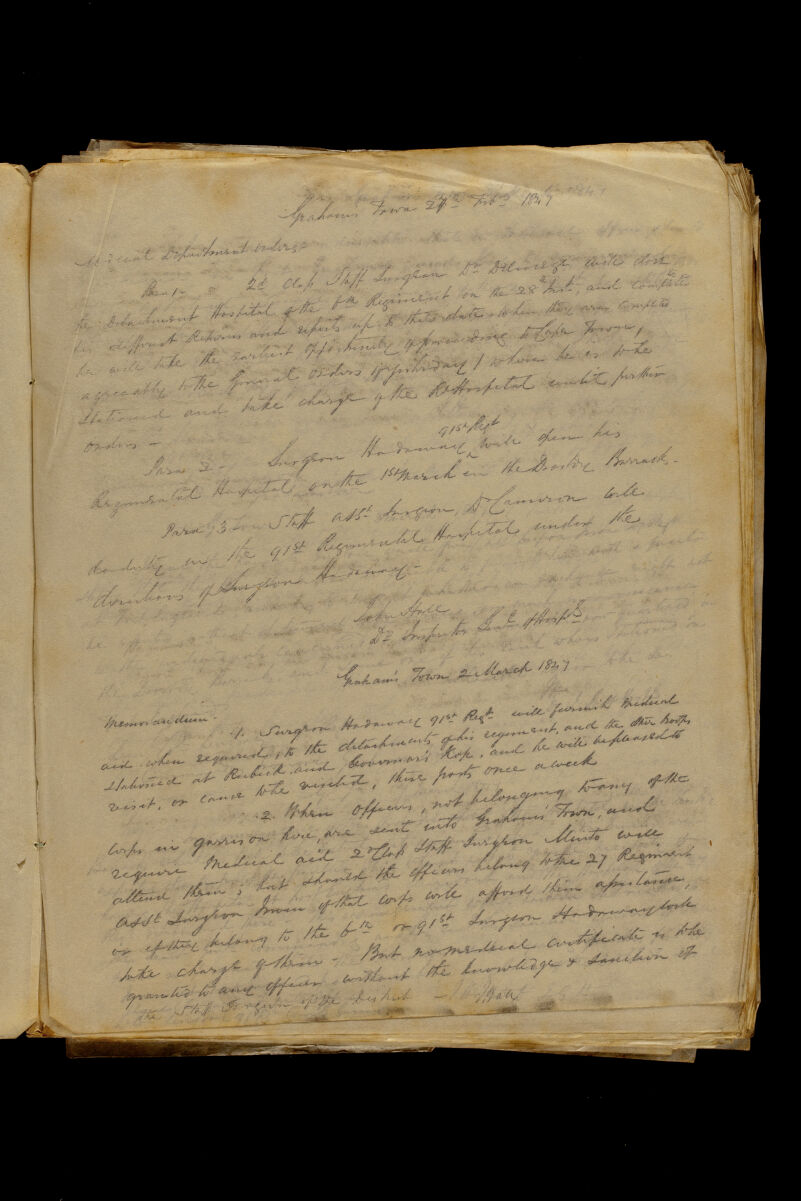 Graham's Town 27th Feby 1847
Medical Department orders
Para 1 - 2d Class Staff Surgeon Dr will close
the Detachment Hospital of the 6th Regiment on the 28th Inst, and complete
his different Returns and reports up to that date, when they are completed
he will take the earliest opportunity of proceeding to Cape Town,
agreeably to the General orders of yesterday / where he is to be
stationed and take charge of the Hospital until further
orders -
Para 2 - Surgeon Hadaway 91st Regt will open his
Regimental Hospital on the 1st March in the Barrack -
Para 3 Staff Asst Surgeon, Dr Cameron will
do duty in the 91st Regimental Hospital under the
directions of Surgeon Hadaway -
John Hall
Dy Inspector Genl of Hospls
Graham's Town 2 March 1847
Memorandum.
1. Surgeon Hadaway 91st Regt will furnish Medical
aid when required, to the detachments of his regiment, and the other troops
stationed at and Governor's Kop, and he will be pleased to
visit, or cause to be visited, these posts once a week
2. When officers, not belonging to any of the
corps in garrison here, are sent into Graham's Town, and
require Medical aid 2d Class Staff Surgeon Minto will
attend them; but should the officers belong to the 27 Regiment
Asst Surgeon of that corps will afford them assistance,
or if they belong to the 6th or 91st Surgeon Hadaway will
take charge of them - But no medical certificate is to be
granted to any officer without the knowledge & sanction of
the Staff Surgeon of the District -